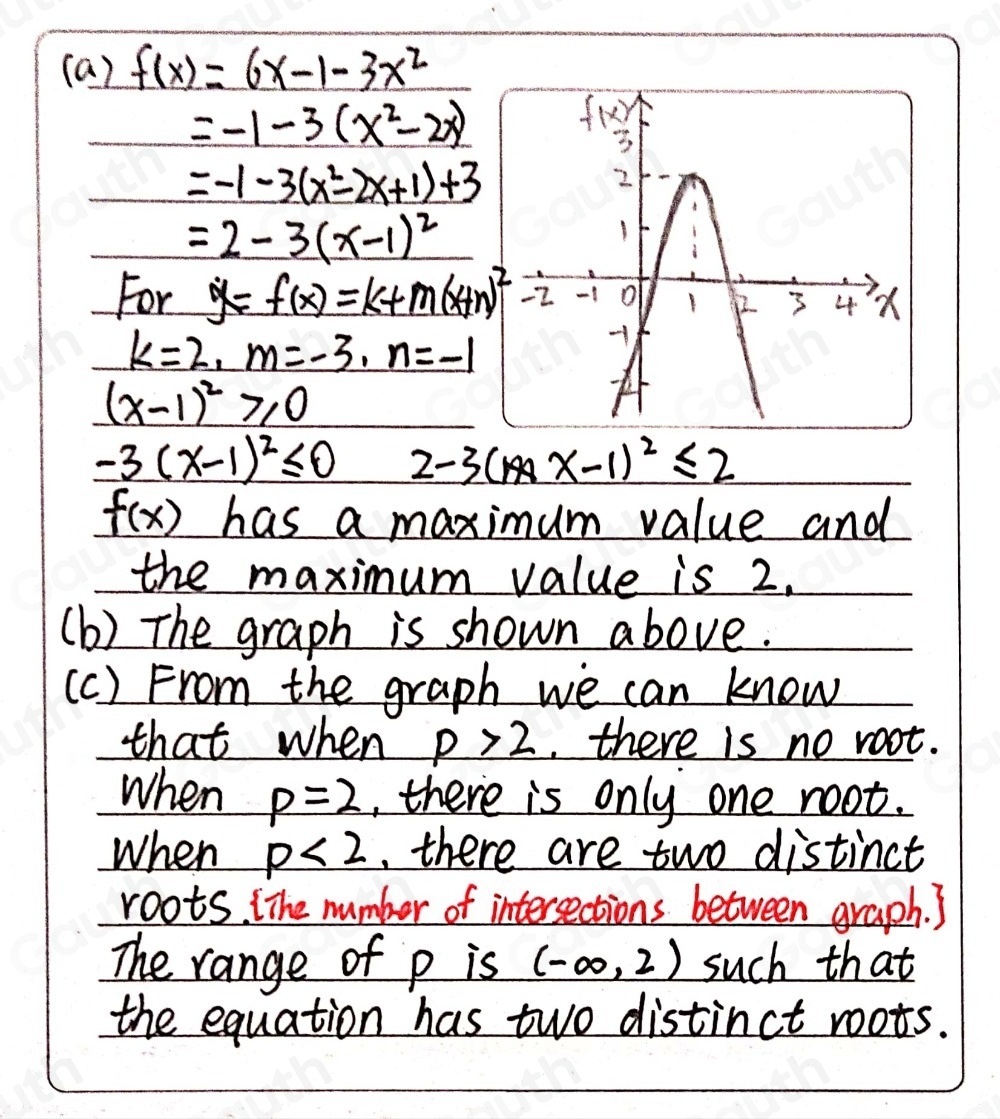 (a) f(x) = 6x-1-3x²
= -1-3(x²-2x)
= -1-3(x²-2x+1)+3
= 2-3(x-1)²
For f(x) = k+m(x+n)²
k=2, m=-3, n=-1
(x-1)² ≥ 0
-3(x-1)² ≤ 0 2-3(x-1)² ≤ 2
f(x)
3
2
1
-2 -1 0 1 2 3 4 x
-1
-2
f(x) has a maximum value and
the maximum value is 2.
(b) The graph is shown above.
(c) From the graph we can know
that when p>2, there is no root.
When p=2, there is only one root.
When p<2, there are two distinct
roots. {The number of intersections between graph.}
The range of p is (-∞, 2) such that
the equation has two distinct roots.